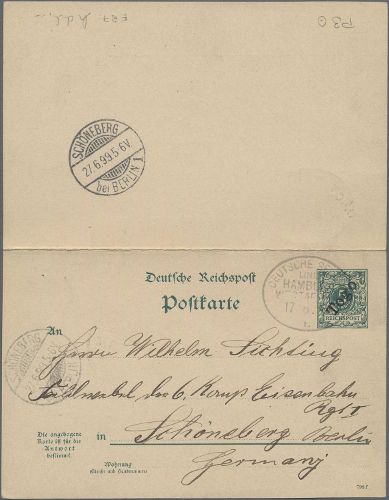 P3 O
SCHÖNEBERG
27.6.99.5-6V
bei BERLIN 1
Deutsche Reichspost
Postkarte
DEUTSCHE
LINIE
HAMBURG
17
Togo
REICHSPOST
An
Herrn Wilhelm
Feldwebel des 6. Komp Eisenbahn
Regt I
Die angebogene
Karte ist für die
Antwort
bestimmt
in Schöneberg Berlin
Wohnung
(Straße und Hausnummer)
Germany